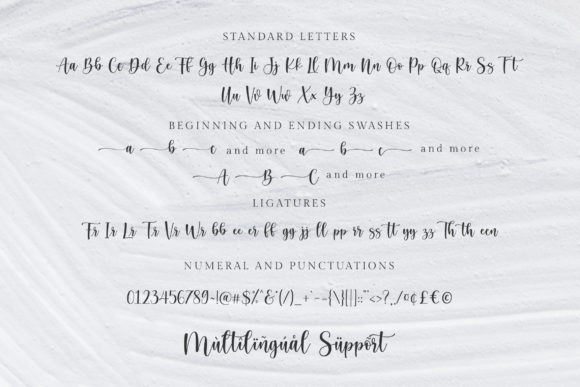 STANDARD LETTERS
Aa Bb Cc Dd Ee Ff Gg Hh Ii Jj Kk Ll Mm Nn Oo Pp Qq Rr Ss Tt
Uu Vv Ww Xx Yy Zz
BEGINNING AND ENDING SWASHES
a b c and more a b c and more
A B C and more
LIGATURES
Fr Ir Lr Tr Vr Wr bb ee er ff gg jj ll pp rr ss tt yy zz Th th een
NUMERAL AND PUNCTUATIONS
0123456789~!@#$%^&*(/)_+`--={\}[|]:;"'<>?,./¤¢£€©
Mùltilîñgúâl Süppört